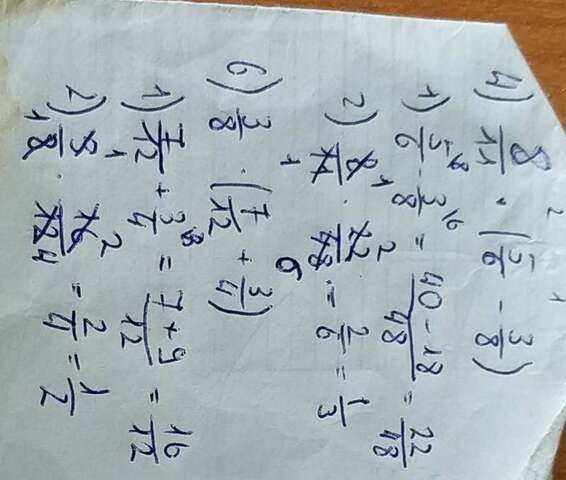 4) 8/11 · (5/6 - 3/8)
1) 5/6 - 3/8 = (40 - 18)/48 = 22/48
2) 8/11 · 22/48 = 2/6 = 1/3
6) 3/8 · (7/12 + 3/4)
1) 7/12 + 3/4 = (7 + 9)/12 = 16/12
2) 3/8 · 16/12 = 2/4 = 1/2